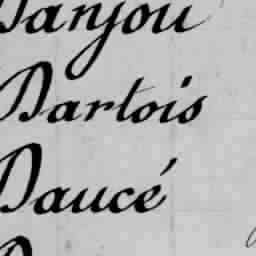 Danjou
Dartois
Daucé